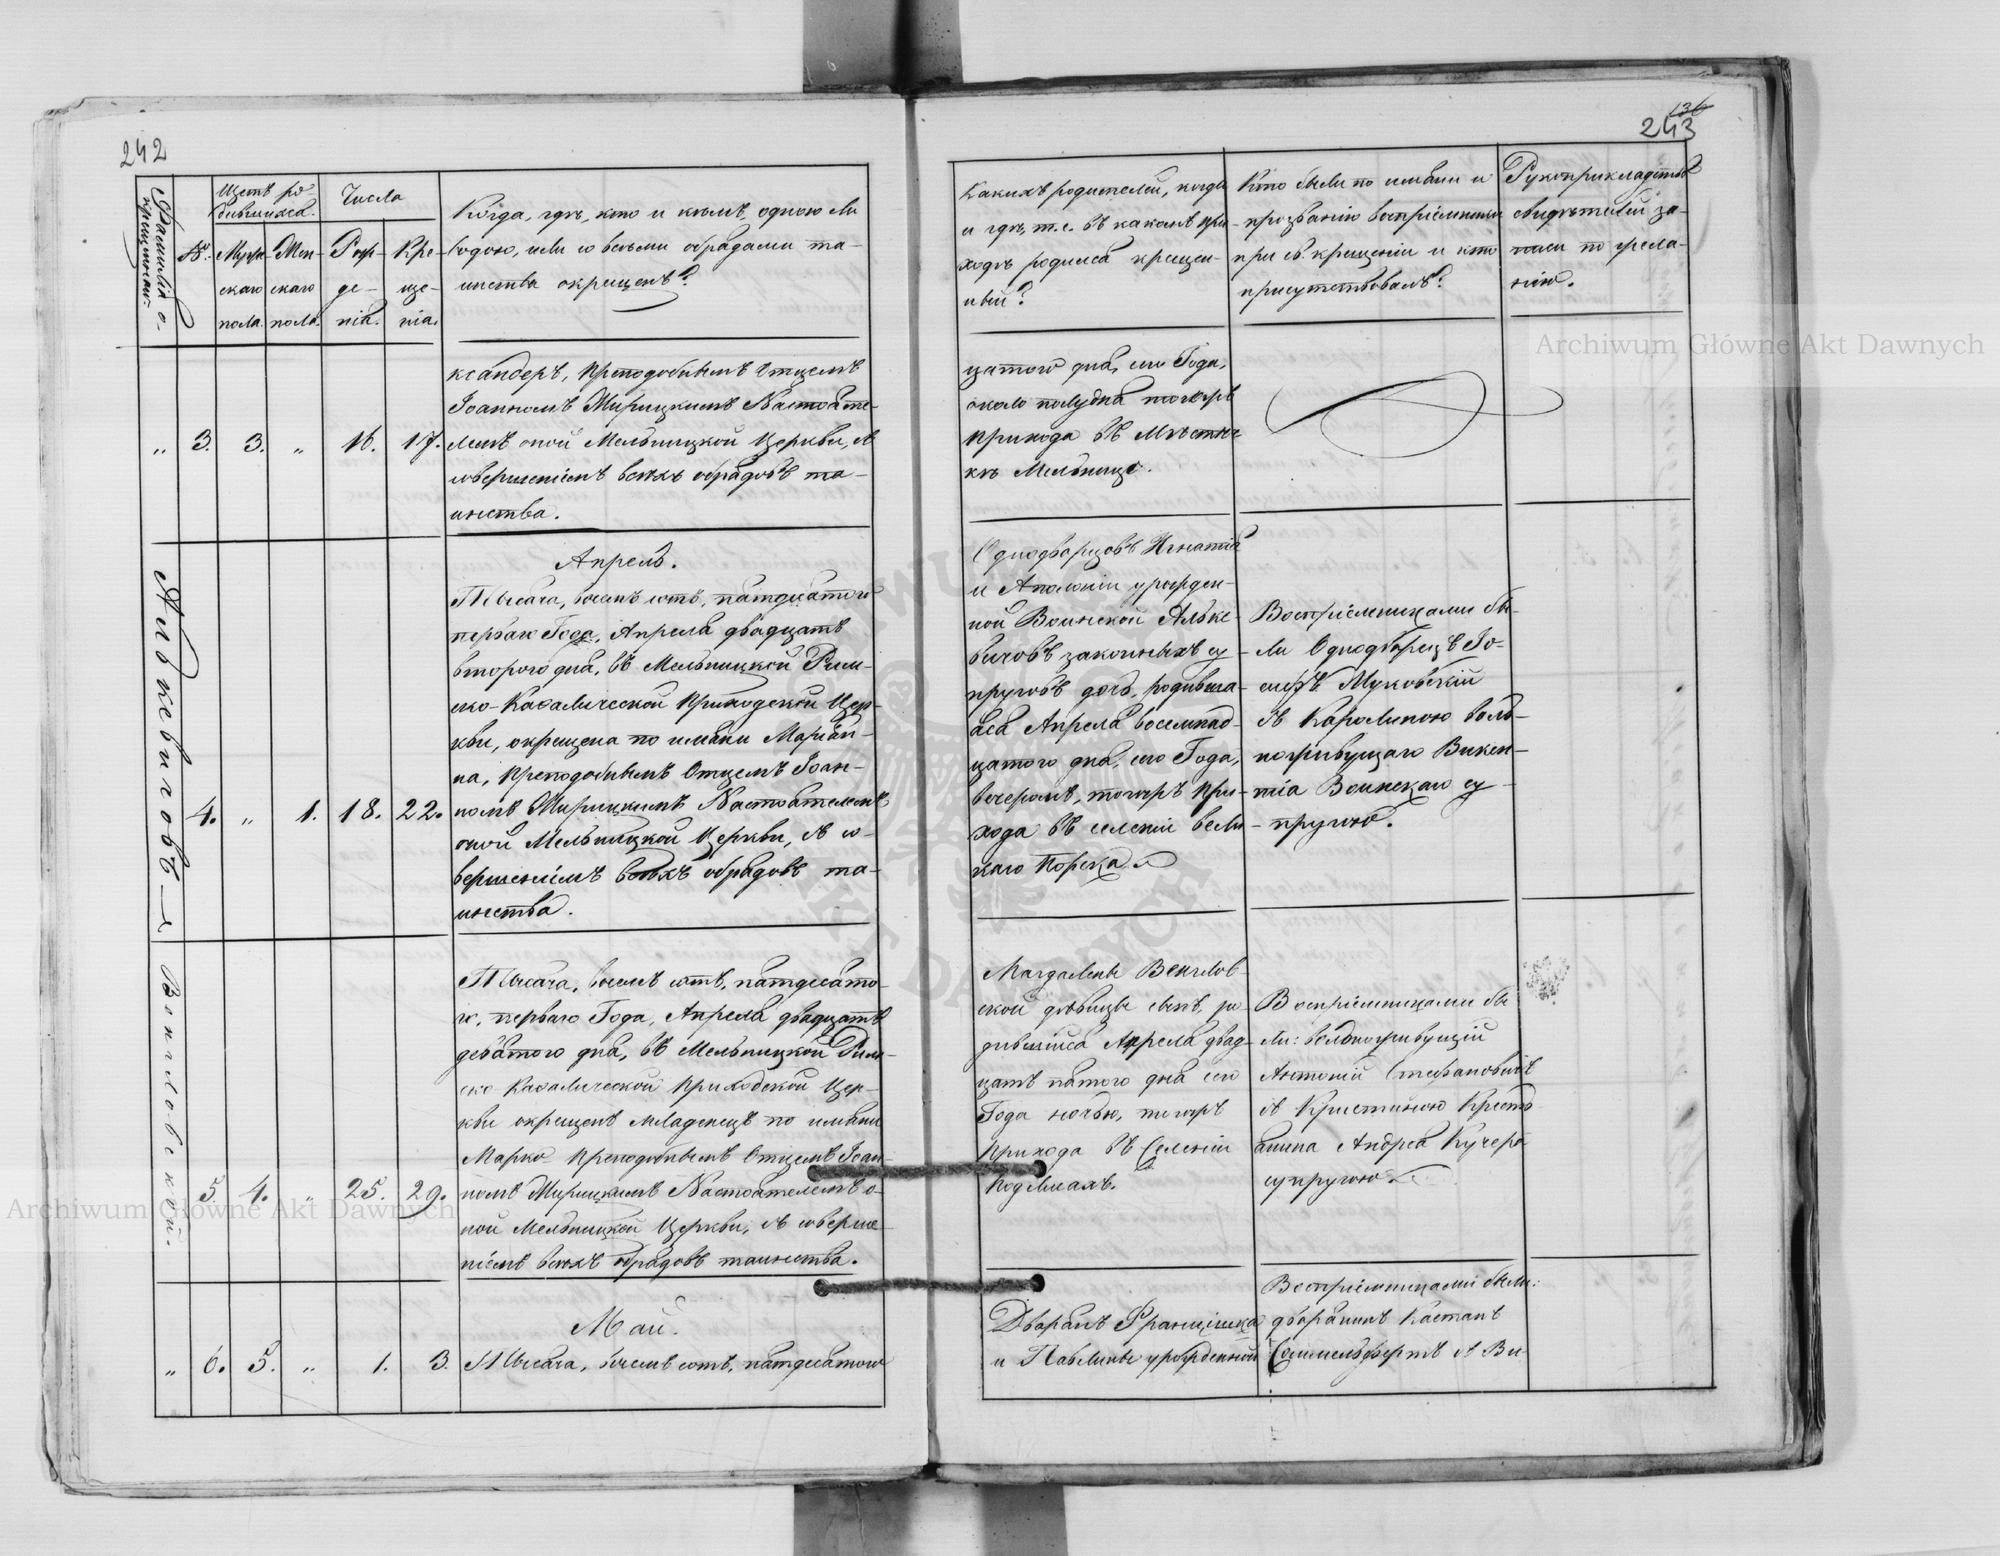 242
Фамилія о-
крещенной.
№.
Щетъ ро-
дившихся.
Муже-
скаго
пола.
Жен-
скаго
пола.
Числа
Рож-
де-
нія.
Кре-
ще-
нія.
Когда, гдѣ, кто и кѣмъ, одною ли
водою, или со всѣми обрядами та-
инства окрещенъ?
„ 3. 3. „ 16. 17.
ксандеръ, Преподобнымъ Отцемъ
Іоанномъ Жирицкимъ Настояте-
лемъ оной Мельницкой Церкви, съ
совершеніемъ всѣхъ обрядовъ та-
инства.
Апрель.
Алькевичовъ
4. „ 1. 18. 22.
Тысяча, восемъ сотъ, пятдесятого
перваго Года, Апреля двадцать
втораго дня, въ Мельницкой Рим-
ско-Каѳолической Приходской Цер-
кви, окрещена по имяни Маріан-
на, Преподобнымъ Отцемъ Іоан-
номъ Жирицкимъ Настоятелемъ
оной Мельницкой Церкви, съ со-
вершеніемъ всѣхъ обрядовъ та-
инства.
Венгловской.
5. 4. „ 25. 29.
Тысяча, восемъ сотъ, пятдесято-
го, перваго Года, Апреля двадцать
девятого дня, въ Мельницкой Рим-
ско-Каѳолической Приходской Цер-
кви окрещенъ младенецъ по имяни
Марко Преподобнымъ Отцемъ Іоан-
номъ Жирицкимъ Настоятелемъ о-
ной Мельницкой Церкви, съ соверше-
ніемъ всѣхъ обрядовъ таинства.
Май.
„ 6. 5. „ 1. 3.
Тысяча, восемъ сотъ, пятдесятого
136
243
Какихъ родителей, когда
и гдѣ, т. е. въ какомъ при-
ходѣ родился крещен-
ный?
Кто были по имяни и
прозванію воспріемники
при св. крещеніи и кто
присутствовалъ?
Рукоприкладство
свидѣтелей за-
писи по жела-
нію.
цатого дня, сего Года,
около полудня тогожъ
прихода въ Мѣстеч-
кѣ Мельницѣ.
Однодворцовъ Игнатія
и Аполоніи урожден-
ной Воинской Альке-
вичовъ законныхъ су-
пруговъ дочь, родивша-
яся Апреля восемнад-
цатого дня, сего Года,
вечеромъ, тогожъ при-
хода въ селеніи вели-
каго Порска.
Воспріемниками бы-
ли Однодворецъ Іо-
сифъ Жуковскій
съ Каролиною воль-
ноживущаго Викен-
тія Воинскаго су-
пругою.
Магдалены Венглов-
ской дѣвицы сынъ, ро-
дившійся Апреля двад-
цать пятого дня сего
Года ночью, тогожъ
прихода въ Селеніи
Подлисахъ.
Воспріемниками бы-
ли: вольноживущій
Антоній Стефановичъ
съ Кристиною Кресть-
янина Андрея Кучера
супругою.
Дворянъ Францишка
и Павлины урожденной
Воспріемниками были:
дворянинъ Каетанъ
съ Ви-
Archiwum Główne Akt Dawnych
Archiwum Główne Akt Dawnych